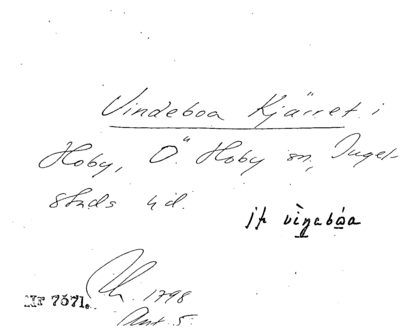 Vindeboa Kjärret i
Hoby, Ö. Hoby sn, Ingel-
stads hd.
jfr vìŋabóa
Nr 7571. 1798
Akt. 5.